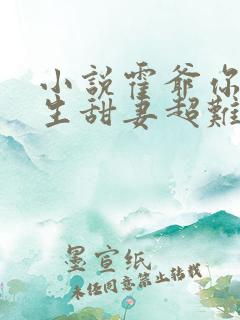 小說霍爺你
生甜妻超難
墨宣纸
未经同意禁止转载